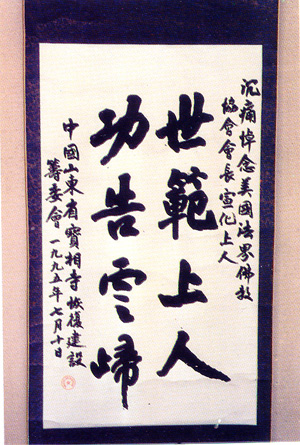 沉痛悼念美國法界佛教
協會會長宣化上人
世範上人
功告雲歸
中國山東省寶相寺恢復建設
籌委會一九九五年七月十日